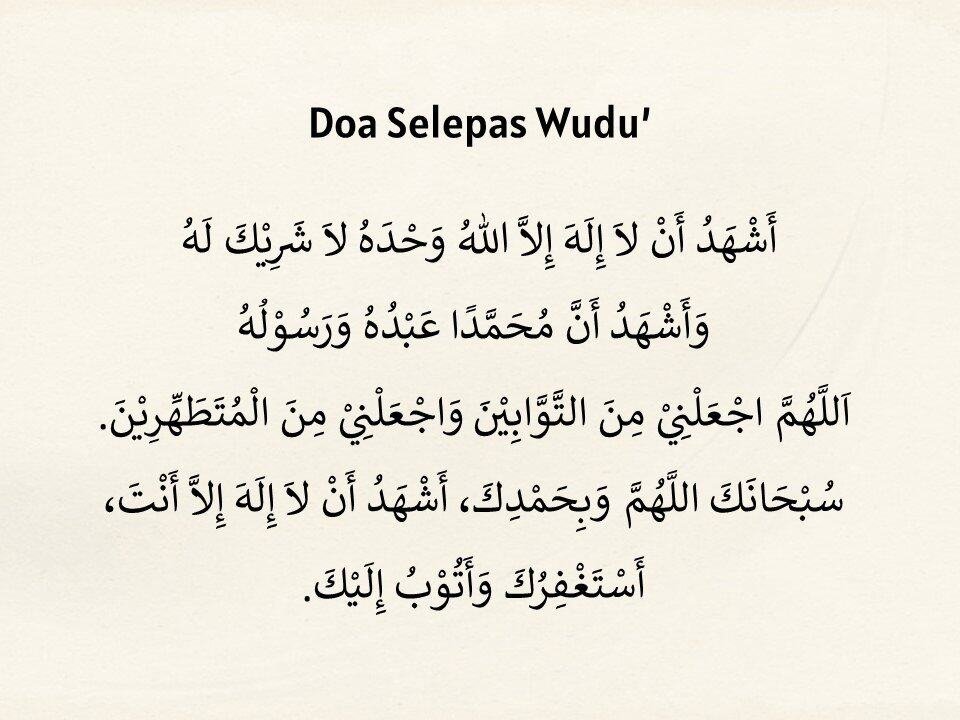 Doa Selepas Wudu'
أَشْهَدُ أَنْ لاَ إِلَهَ إِلاَّ اللهُ وَحْدَهُ لاَ شَرِيْكَ لَهُ
وَأَشْهَدُ أَنَّ مُحَمَّدًا عَبْدُهُ وَرَسُوْلُهُ
اَللَّهُمَّ اجْعَلْنِيْ مِنَ التَّوَّابِيْنَ وَاجْعَلْنِيْ مِنَ الْمُتَطَهِّرِيْنَ.
سُبْحَانَكَ اللَّهُمَّ وَبِحَمْدِكَ، أَشْهَدُ أَنْ لاَ إِلَهَ إِلاَّ أَنْتَ،
أَسْتَغْفِرُكَ وَأَتُوْبُ إِلَيْكَ.